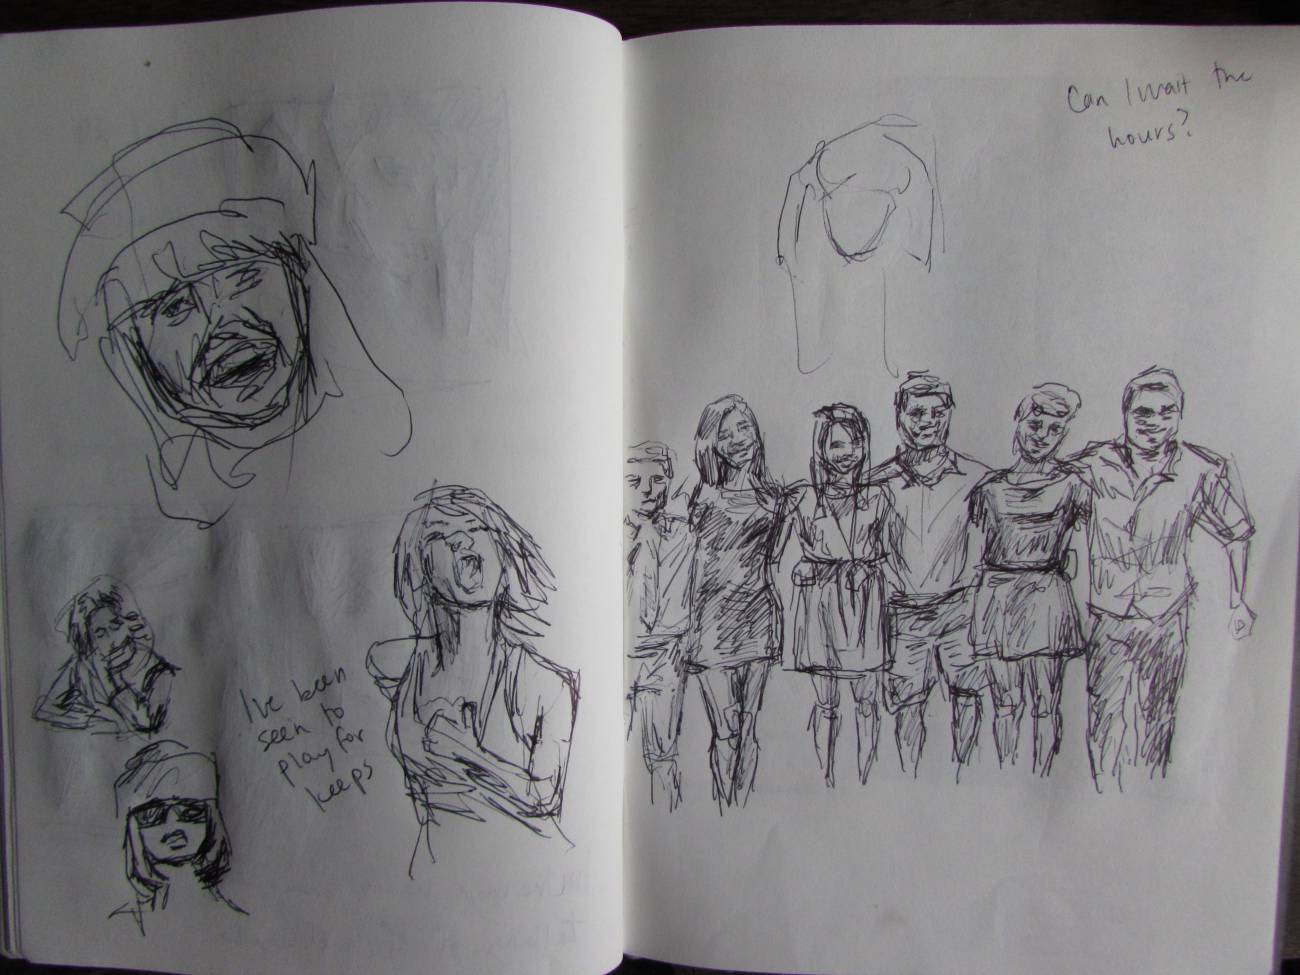 I've been
seen to
play for
keeps
Can I wait the
hours?